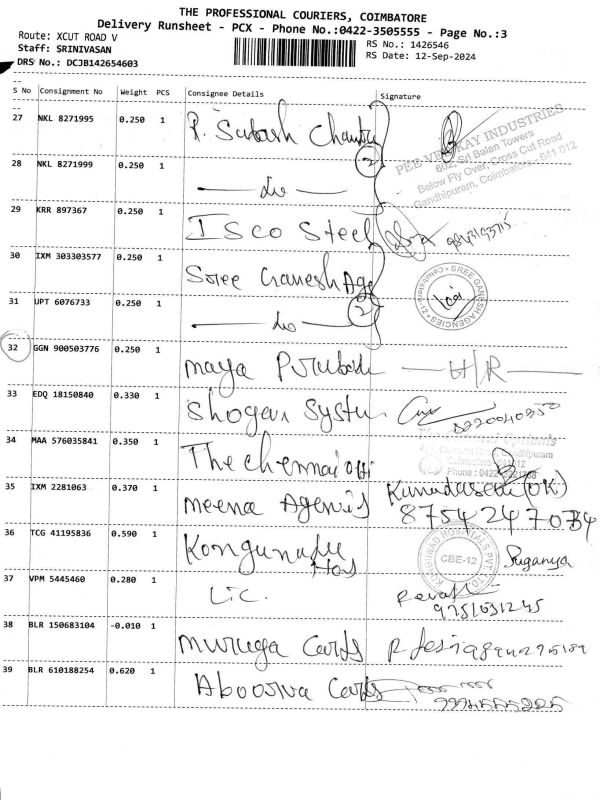 THE PROFESSIONAL COURIERS, COIMBATORE
Delivery Runsheet - PCX - Phone No.:0422-3505555 - Page No.:3
Route: XCUT ROAD V
RS No.: 1426546
Staff: SRINIVASAN
RS Date: 12-Sep-2024
DRS No.: DCJB142654603
S No Consignment No Weight PCS Consignee Details Signature
27 NKL 8271995 0.250 1 P. Subash
PEE VEEKAY INDUSTRIES
602, Sri Balan Towers
Below Fly Over, Cross Cut Road
Gandhipuram, Coimbatore - 641 012
28 NKL 8271999 0.250 1 — do — 2
29 KRR 897367 0.250 1 ISCO Steel
30 IXM 303303577 0.250 1 Sree Ganesh Age
SREE GANESH AGENCIES
31 UPT 6076733 0.250 1 — do — 2
32 GGN 900503776 0.250 1 Maya
33 EDQ 18150840 0.330 1 Shogan System
34 MAA 576035841 0.350 1 The Chennai
Phone : 0422
35 IXM 2281063 0.370 1 Meena Agencies (OK)
36 TCG 41195836 0.590 1 Kongunadu Hos
CBE-12
Suganya
37 VPM 5445460 0.280 1 LIC. Revathi
9751031245
38 BLR 150683104 -0.010 1 Muruga Cards
39 BLR 610188254 0.620 1 Aboorva Cards